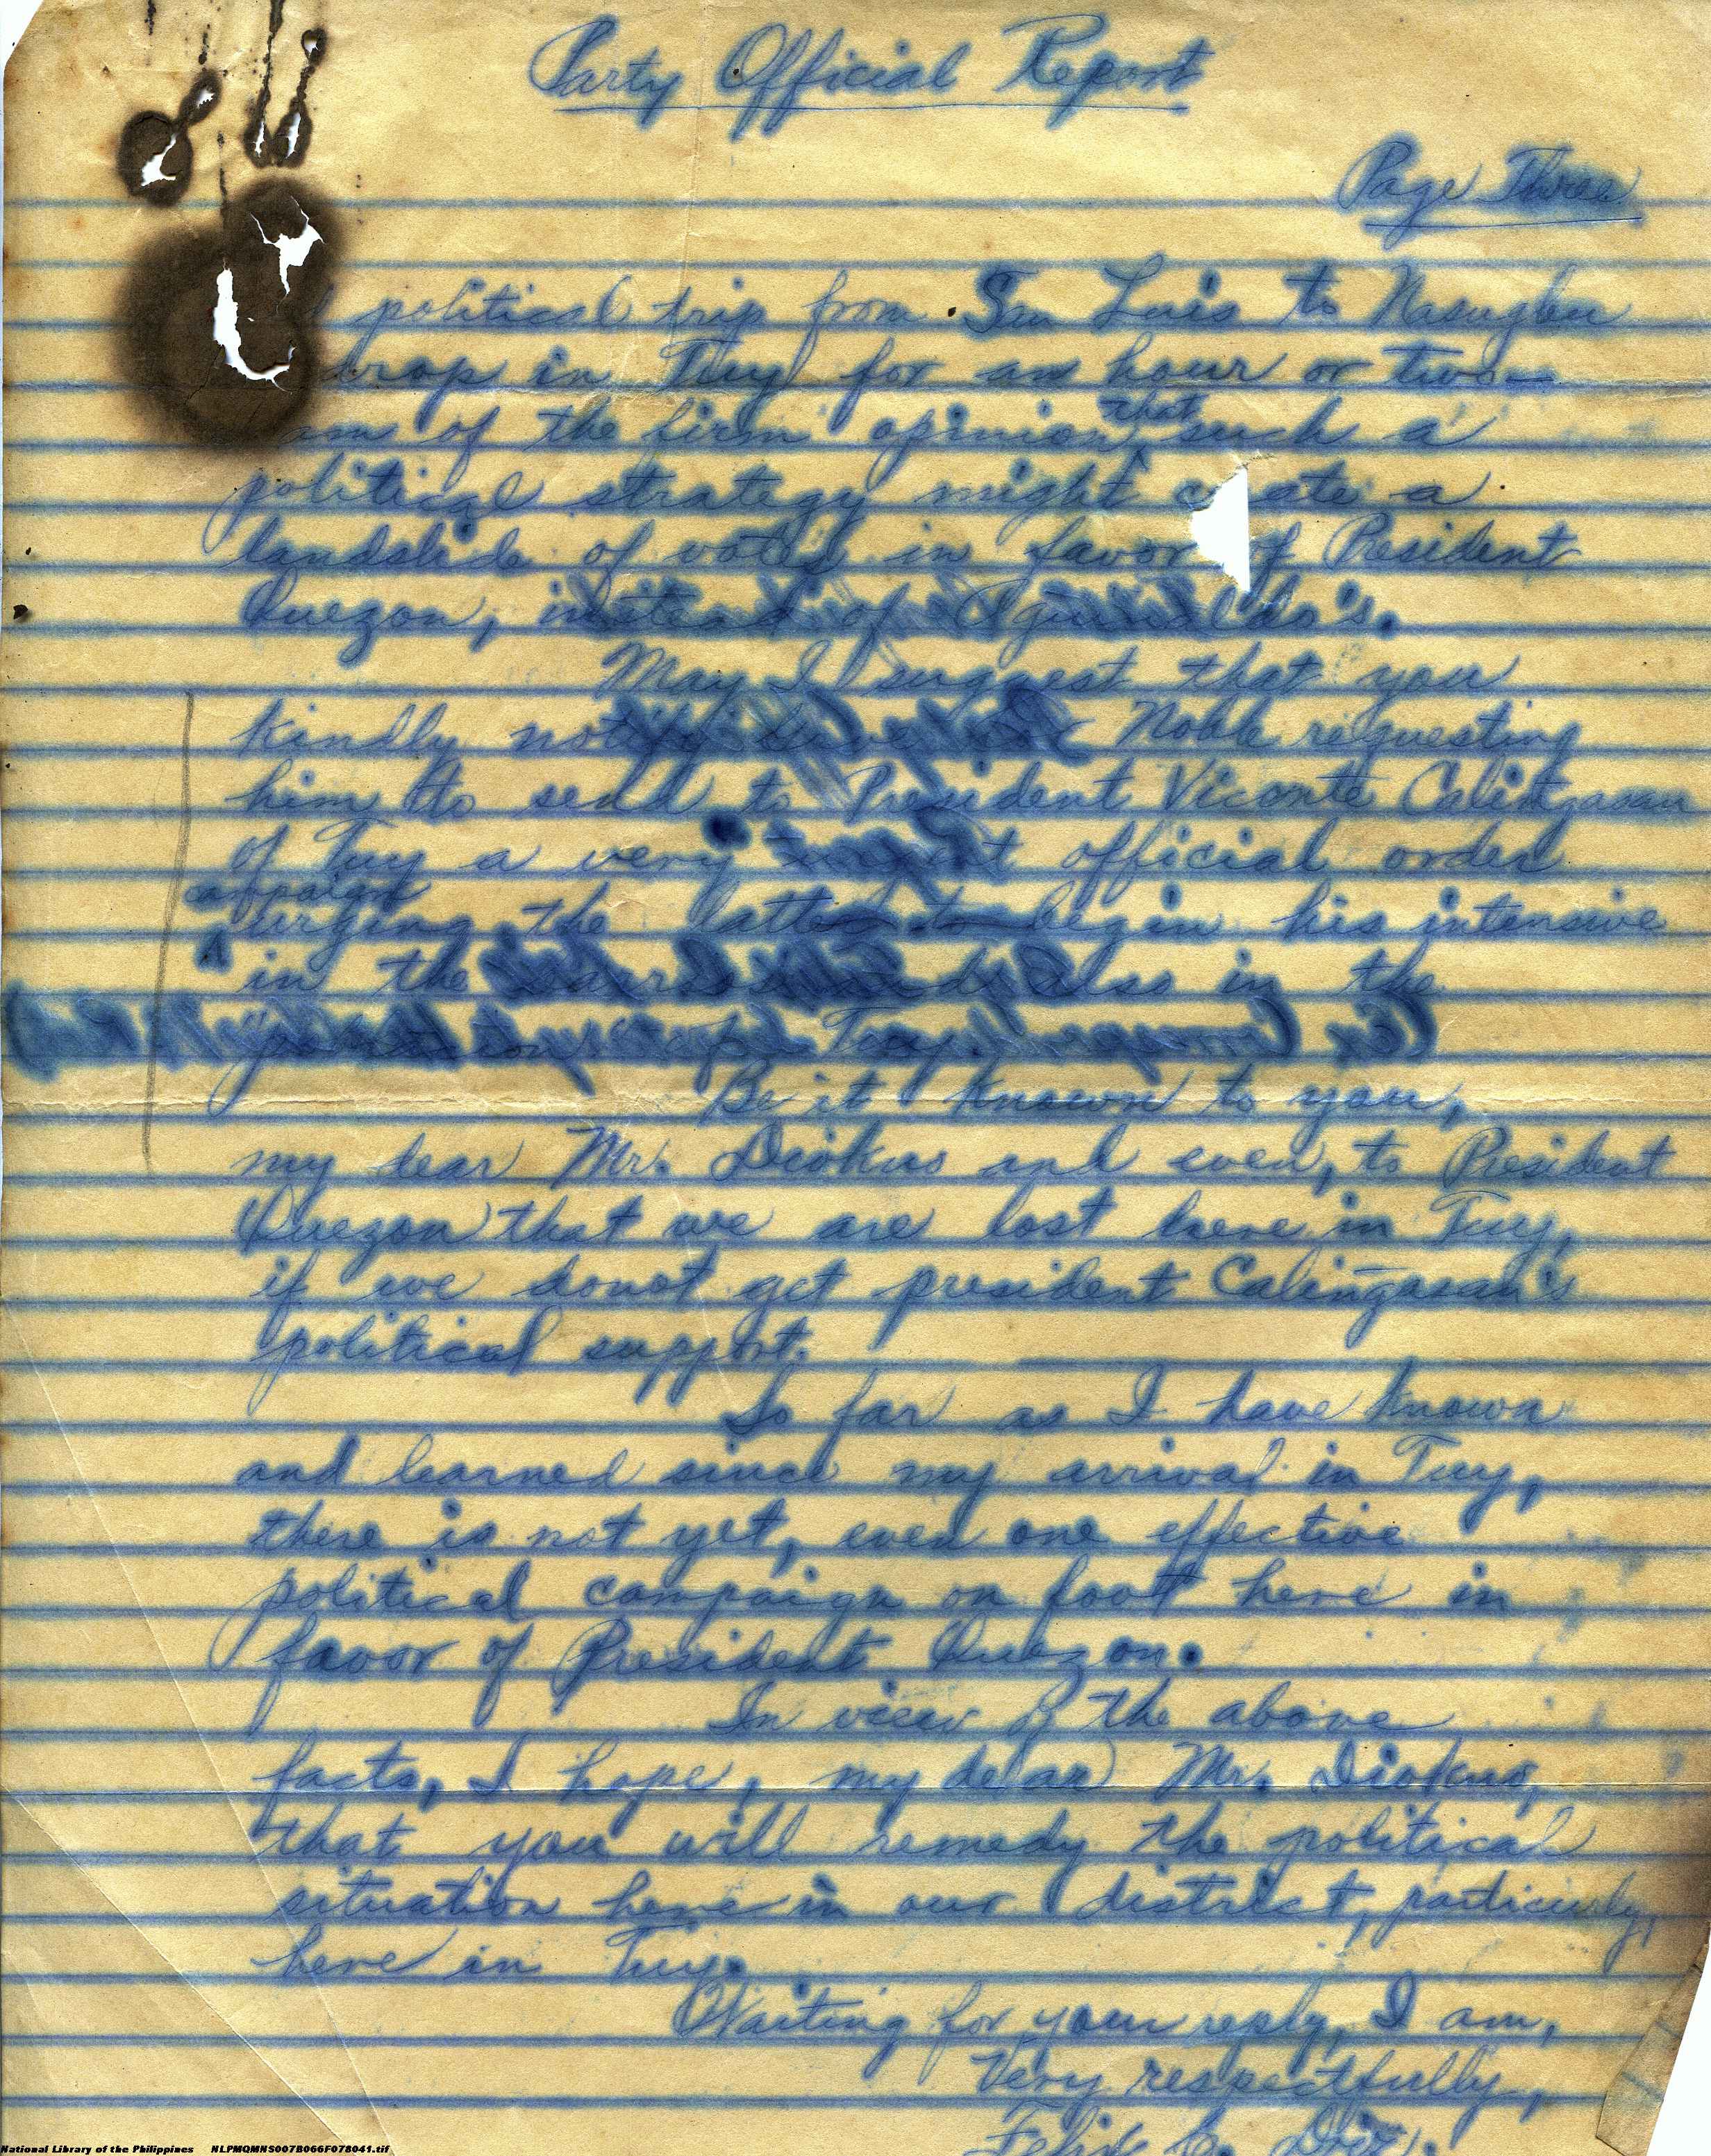 Party Official Report
Page Three
political trip from San Luis to Nasugbu
drop in Tuy for an hour or two
am of the firm opinion that such a
political strategy might create a
landslide of votes in favor of President
Quezon, instead of Aguinaldo's.
May I suggest that you
kindly Noble requesting
him to send to President Viconte Calingasan
of Tuy a very official order
campaign
urging the latter to begin his intensive
in the and also in the
Be it known to you,
my dear Mr. Diokno and even, to President
Quezon that we are lost here in Tuy,
if we donot get president Calingasan's
political support.
So far as I have known
and learned since my arrival in Tuy,
there is not yet, even one effective
political campaign on foot here in
favor of President Quezon.
In view of the above
facts, I hope, my dear Mr. Diokno,
that you will remedy the political
situation here in our district,
here in Tuy.
Waiting for your reply, I am,
Very respectfully,
Felix
National Library of the Philippines NLPMQMNS007B066F078041.tif